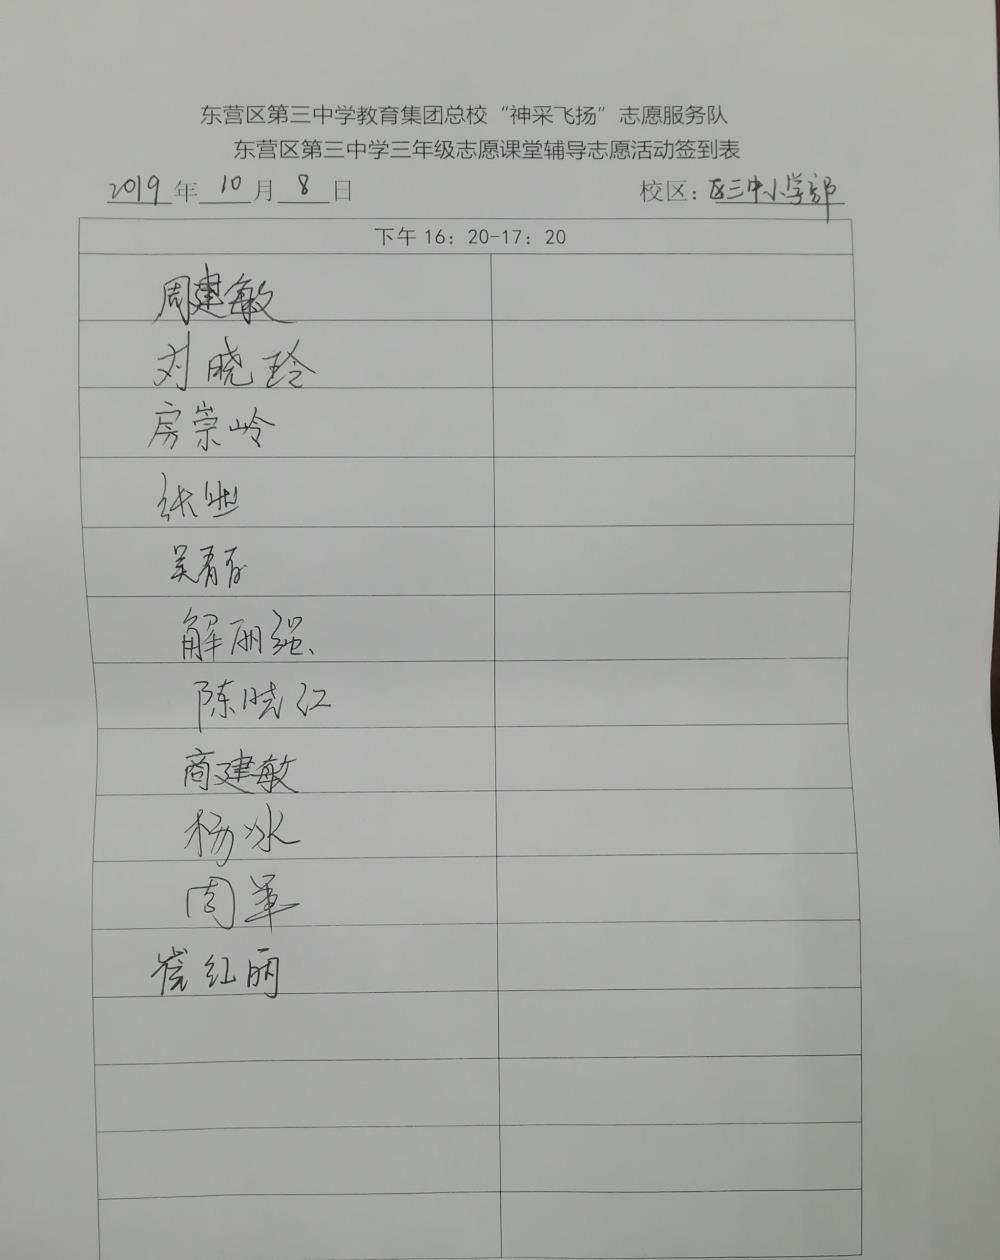 东营区第三中学教育集团总校“神采飞扬”志愿服务队
东营区第三中学三年级志愿课堂辅导志愿活动签到表
2019年10月8日 校区：区三中小学部
下午16：20-17：20
周建敏
刘晓玲
房崇岭
张
吴青
解丽强
陈晓红
商建敏
杨冰
周军
崔红丽